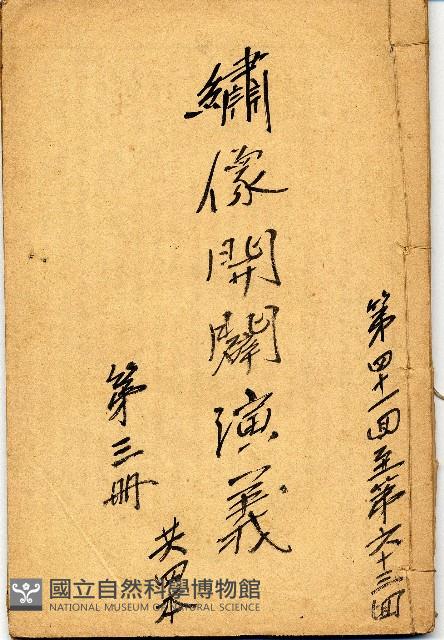 第四十一回至第六十三回
繡像開闢演義
第三冊
共四本
國立自然科學博物館
NATIONAL MUSEUM OF NATURAL SCIENCE